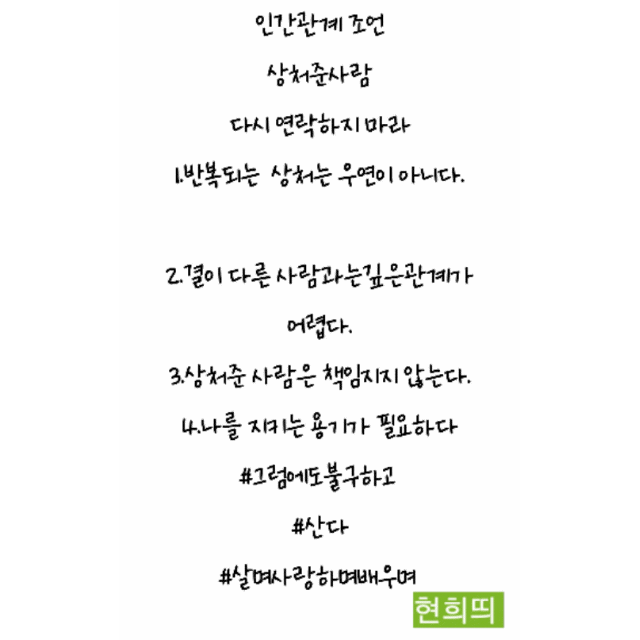 인간관계 조언
상처준사람
다시 연락하지 마라
1.반복되는 상처는 우연이 아니다.
2.결이 다른 사람과는깊은관계가
어렵다.
3.상처준 사람은 책임지지 않는다.
4.나를 지키는 용기가 필요하다
#그럼에도불구하고
#산다
#살며사랑하며배우며
현희띄